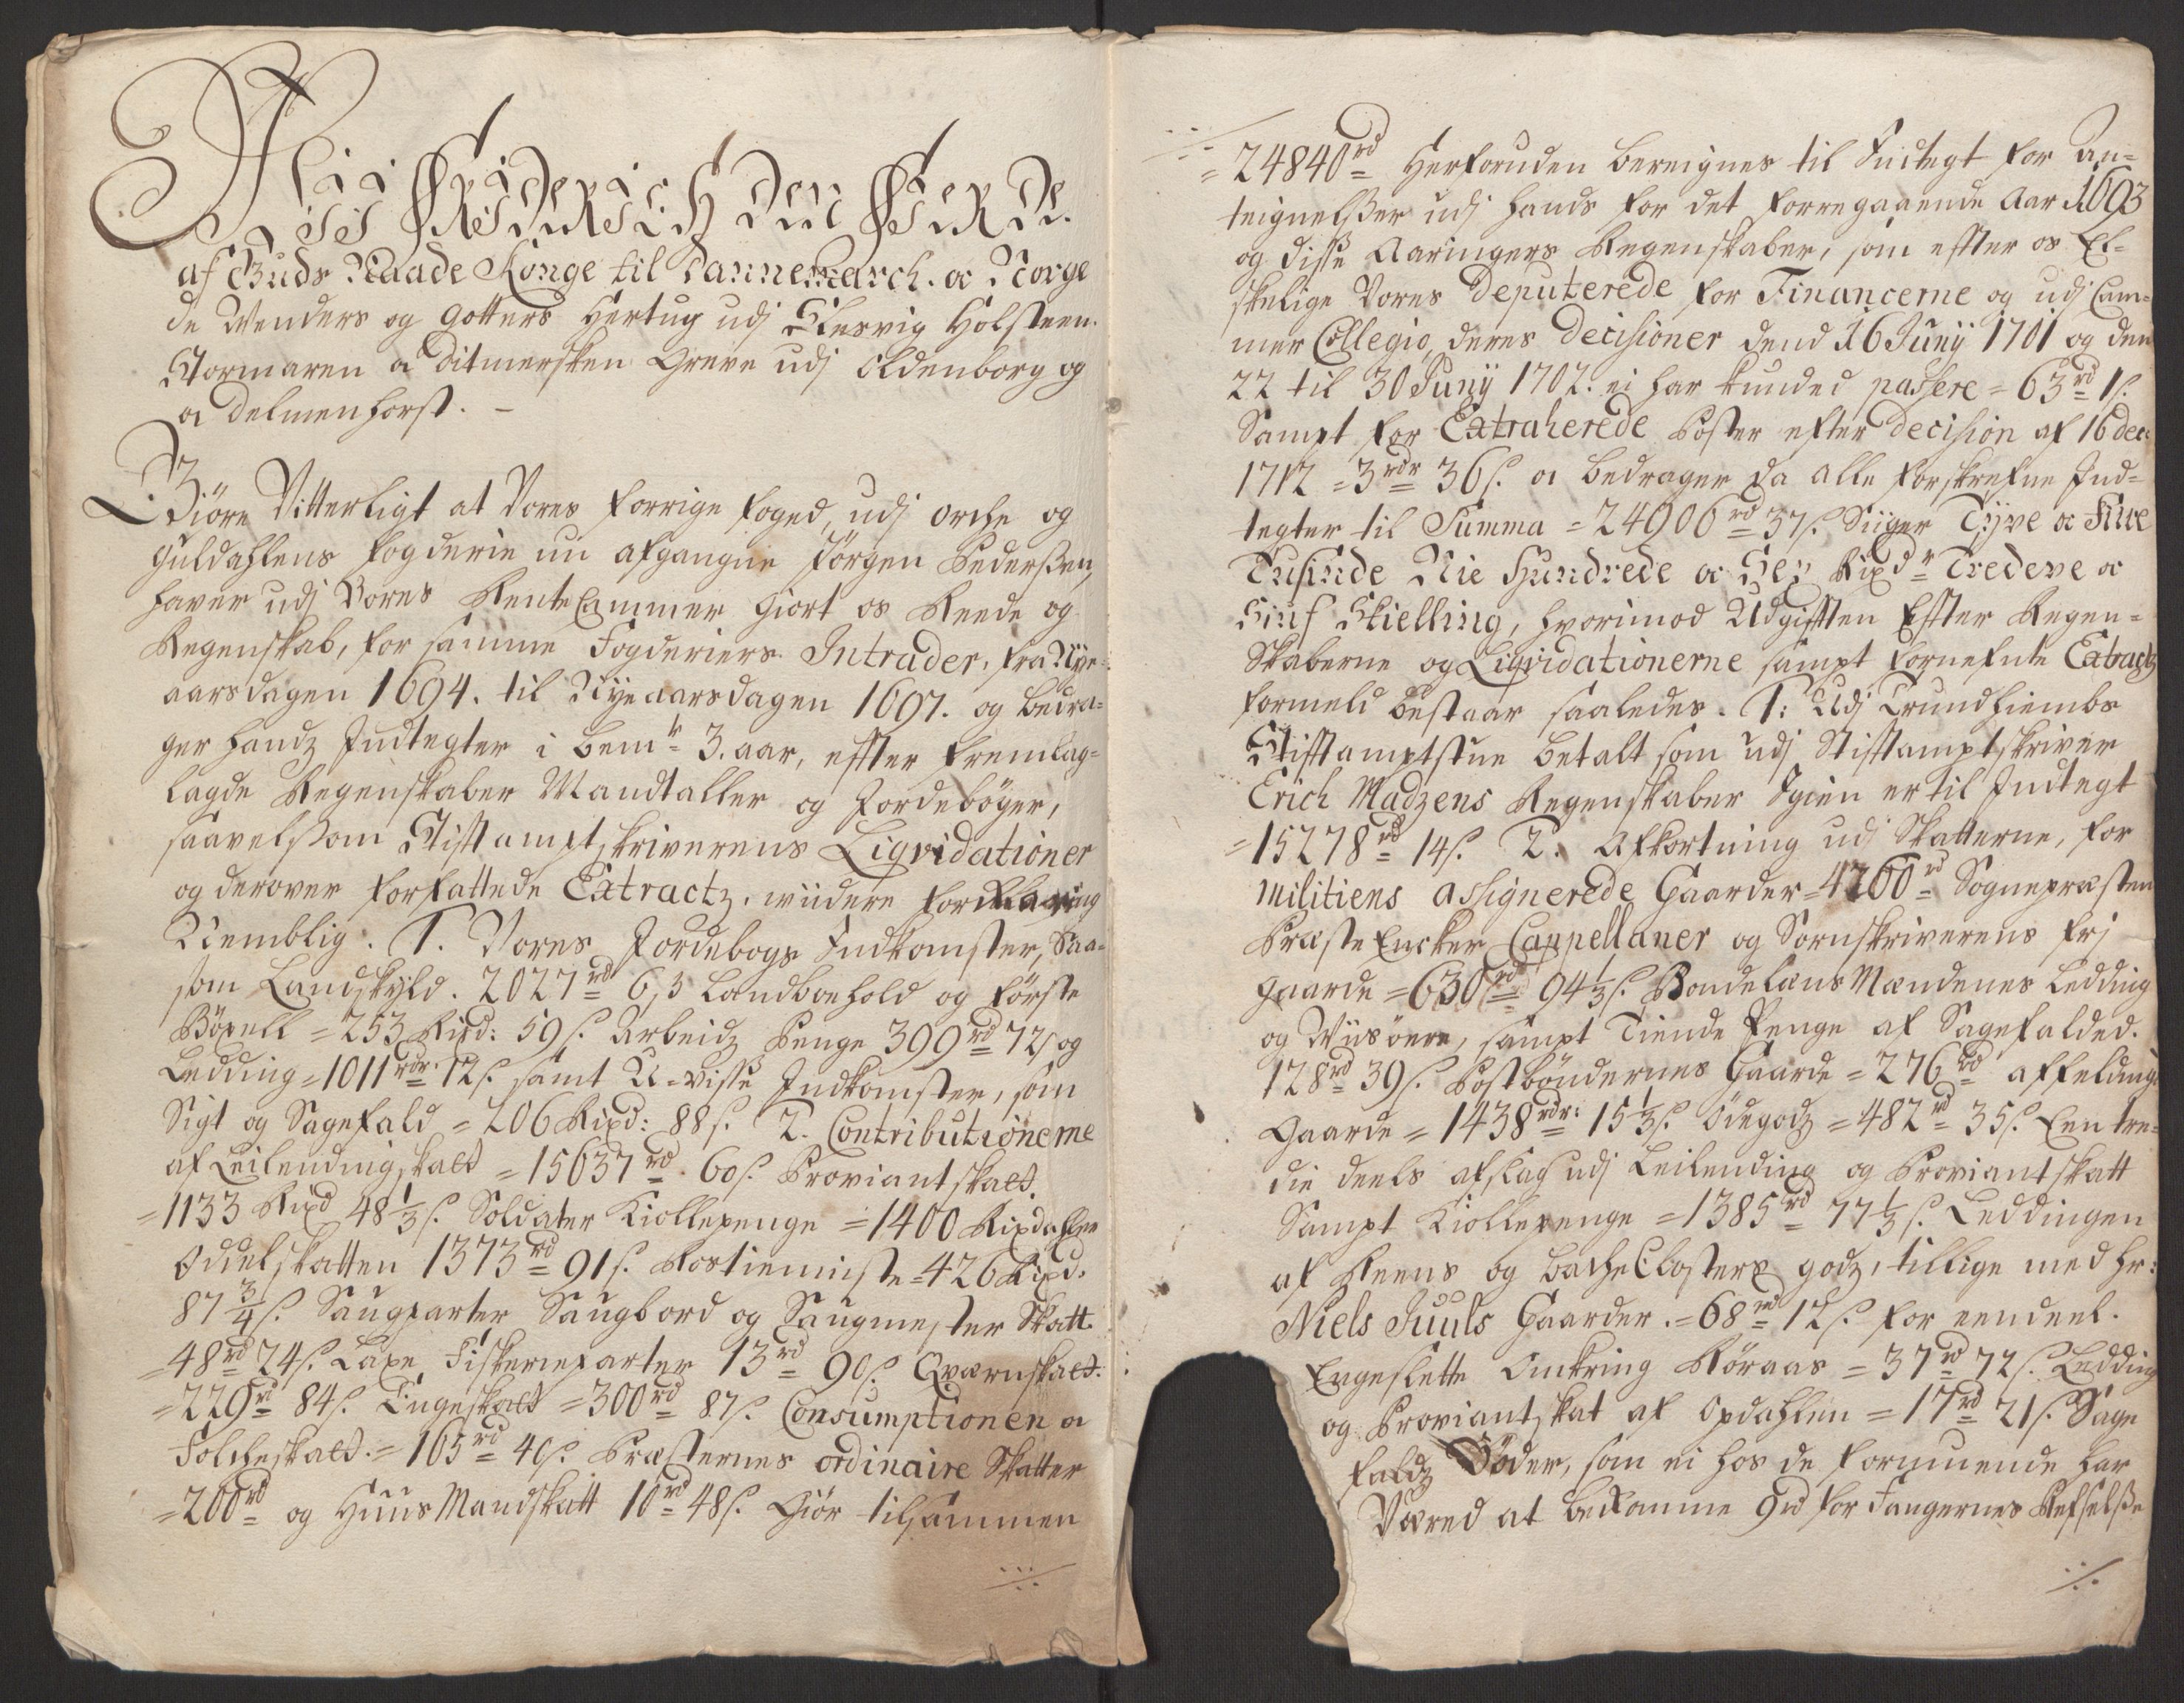 Wii Friderich den Fierde.
af Guds Naade Konge til Dannemarch. oc Norge
de Wenders og Gotters Hertug udj Slesvig Holsteen.
Stormaren oc Ditmersken Greve udj Oldenborg og
oc Delmenhorst. -
Giöre Vitterligt at Vores forrige foged, udj Orche og
Guldahlens fogderie nu afgangne Jörgen Pederssen,
haver udj Vores Rente Cammer giort os Reede og
Regenskab, for samme Fogderiers Intrader, fra Nye-
aarsdagen 1694. til Nyeaarsdagen 1697. og bedra-
ger handz Indtegter i bemte 3. aar, effter fremlag-
lagde Regenskaber Mandtaller og Jordebøger,
saavelsom Stiftamptskriverens Liqvidationer
og derover forfattede Extractz. wiidere forklaring
Nemblig. 1. Vores Jordebogs Indkomster, Saa-
som Landskyld. 2027rd 6ß Landbohold og förste
Böxell = 253 Rixd: 59ß. Arbeidz Penge 399rd 72ß og
Ledding = 1011rdr: 12ß. samt U-visse Indkomster, som
Sigt og Sagefald = 206 Rixd: 88ß. 2. Contributionerne
af Leilendingskatt = 15637rd. 60ß. Proviantskatt.
= 1133 Rixd 48 1/3 ß. Soldater Kiollepenge = 1400 Rixdaler
Odelskatten 1373rd 91ß. Rostieniste = 426 Rixd.
87 3/4 ß. Saugparter Saugbord og Saugmester Skatt.
= 48rd 24ß. Laxe Fiskerieparter 13rd = 90ß. Qværnskatt:
= 229rd 84ß. Tingeskatt = 300rd 87ß. Consumptionen oc
Folcheskatt. = 165rd 40ß. Præsternes ordinaire Skatter
= 200rd og Huus Mandskatt 10rd 48ß. Giör tilsammen
= 24840rd Herforuden bereignes til Indtegt for An-
teignelsser udj hands for det forregaaende Aar 1693
og disse Aaringers Regenskaber, som effter os El-
skelige Vores Deputerede for Financerne og udj Cam-
mer Collegio, deres Decisioner dend 16 Junij 1701 og den
22 til 30 Junij 1702. ei har kunded passere = 63rd 1ß.
Sampt for Extraherede Poster efter decision af 16 dec:
1712 = 3rdr 36ß. oc bedrager da alle forskrefne Ind-
tegter til Summa = 24906rd 37ß. Siiger Tyve oc Fiire
Tusinde Nie Hundrede oc Sex Rixdr Tredeve oc
Siuf Skielling, hvorimod Udgifften Effter Regen-
Skaberne og Liqvidationerne sampt fornefnte Extractz
formeld bestaar saaledes. 1: Udj Trundhiembs
Stifftamptstue betalt som udj Stifftamptskriver
Erich Madzens Regenskaber Igien er til Indtegt
= 15278rd 14ß. 2. Afkortning udj Skatterne, for
Militiens assignerede Gaarder = 4260rd Sognepræsten
Præste Encker Cappellaner og Sornskriverens frj
gaarde = 630rd 94 1/3 ß. Bonde Læns Mændenes Ledding
og Wiisöere, sampt Tiende Penge af Sagefalded.
128rd 39ß. Postböndernes Gaarde = 276rd affeldings
Gaarde = 1438rdr: 15 1/3 ß. Ödegodz = 482rd 35ß. Een tre-
die deels afslag udj Leilending og Proviantskatt
Sampt Kiollepenge = 1385rd 77 1/3 ß. Leddingen
af Reens og Bache Closters godz, tillige med Hr:
Niels Juuls Gaarder. = 68rd 12ß. for eendeel.
Engeslette Omkring Röraas = 37rd 72ß. Ledding
og Proviantskat af Opdahlen = 17rd 21ß. Sage
faldz Böder, som ei hos de formuende har
Været at bekomme 9rd for Fangernes Refselsse